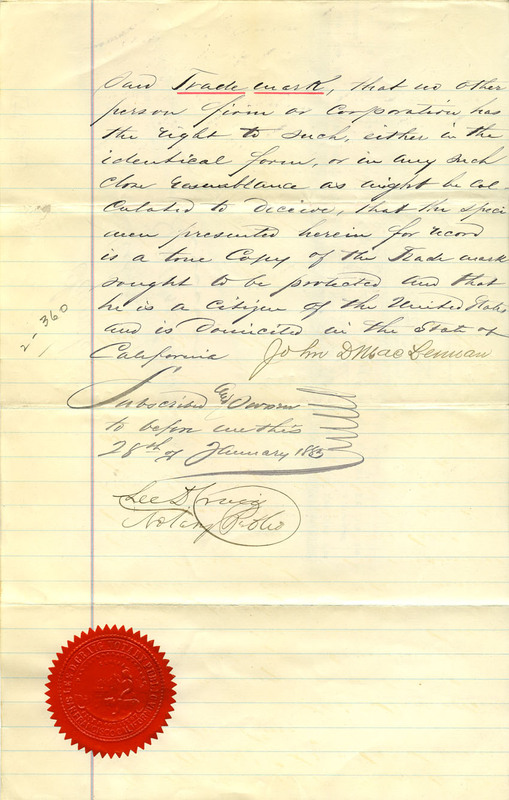 Said Trade mark, that no other
person firm or Corporation has
the right to such, either in the
identical form, or in any such
close resemblance as might be Cal-
culated to deceive, that the speci
men presented herein for record
is a true Copy of the Trade mark
sought to be protected and that
he is a citizen of the United States
and is Domiciled in the State of
California John D Mac Lennan
2-360
Subscribed and Sworn
to before me this
28th of January 1883
Lee D Craig
Notary Public